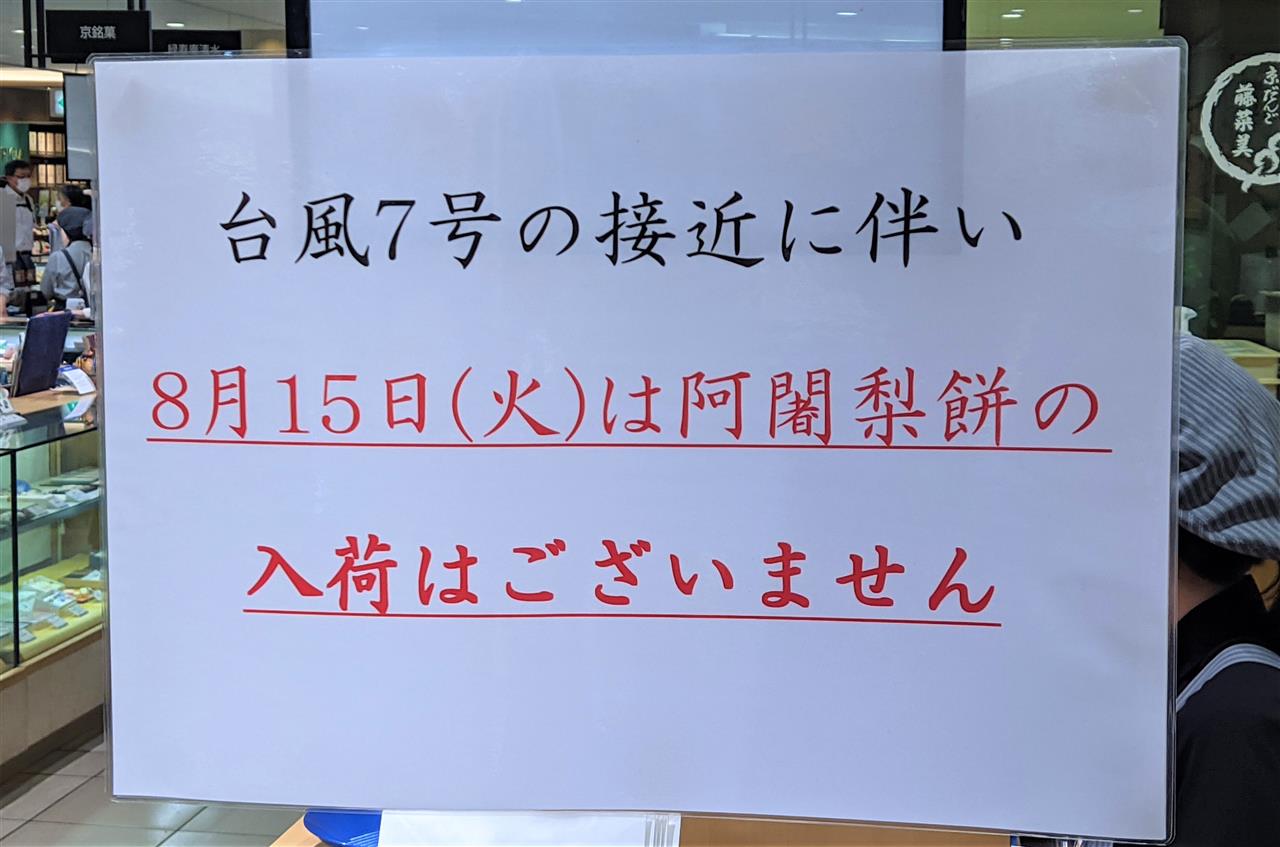 京銘菓
緑寿庵清水
京だんご
藤菜美
台風7号の接近に伴い
8月15日(火)は阿闍梨餅の
入荷はございません